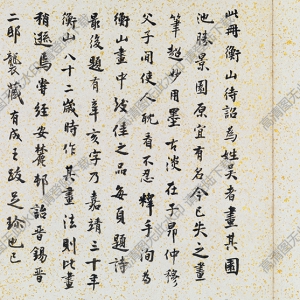 此冊衡山待詔為姓吴者畫其園
池勝景園原宜有名今已失之畫
筆超妙用墨古淡在子昂仲穆
父子間使人耽看不忍釋手間為
衡山畫中致佳之品每頁題詩
最後題有辛亥字乃嘉靖三十年
衡山八十二歲時作其畫法則此畫
稍遜焉曾經安麓邨詒晉錫晋
二邸襲藏有成王跋足珍也已